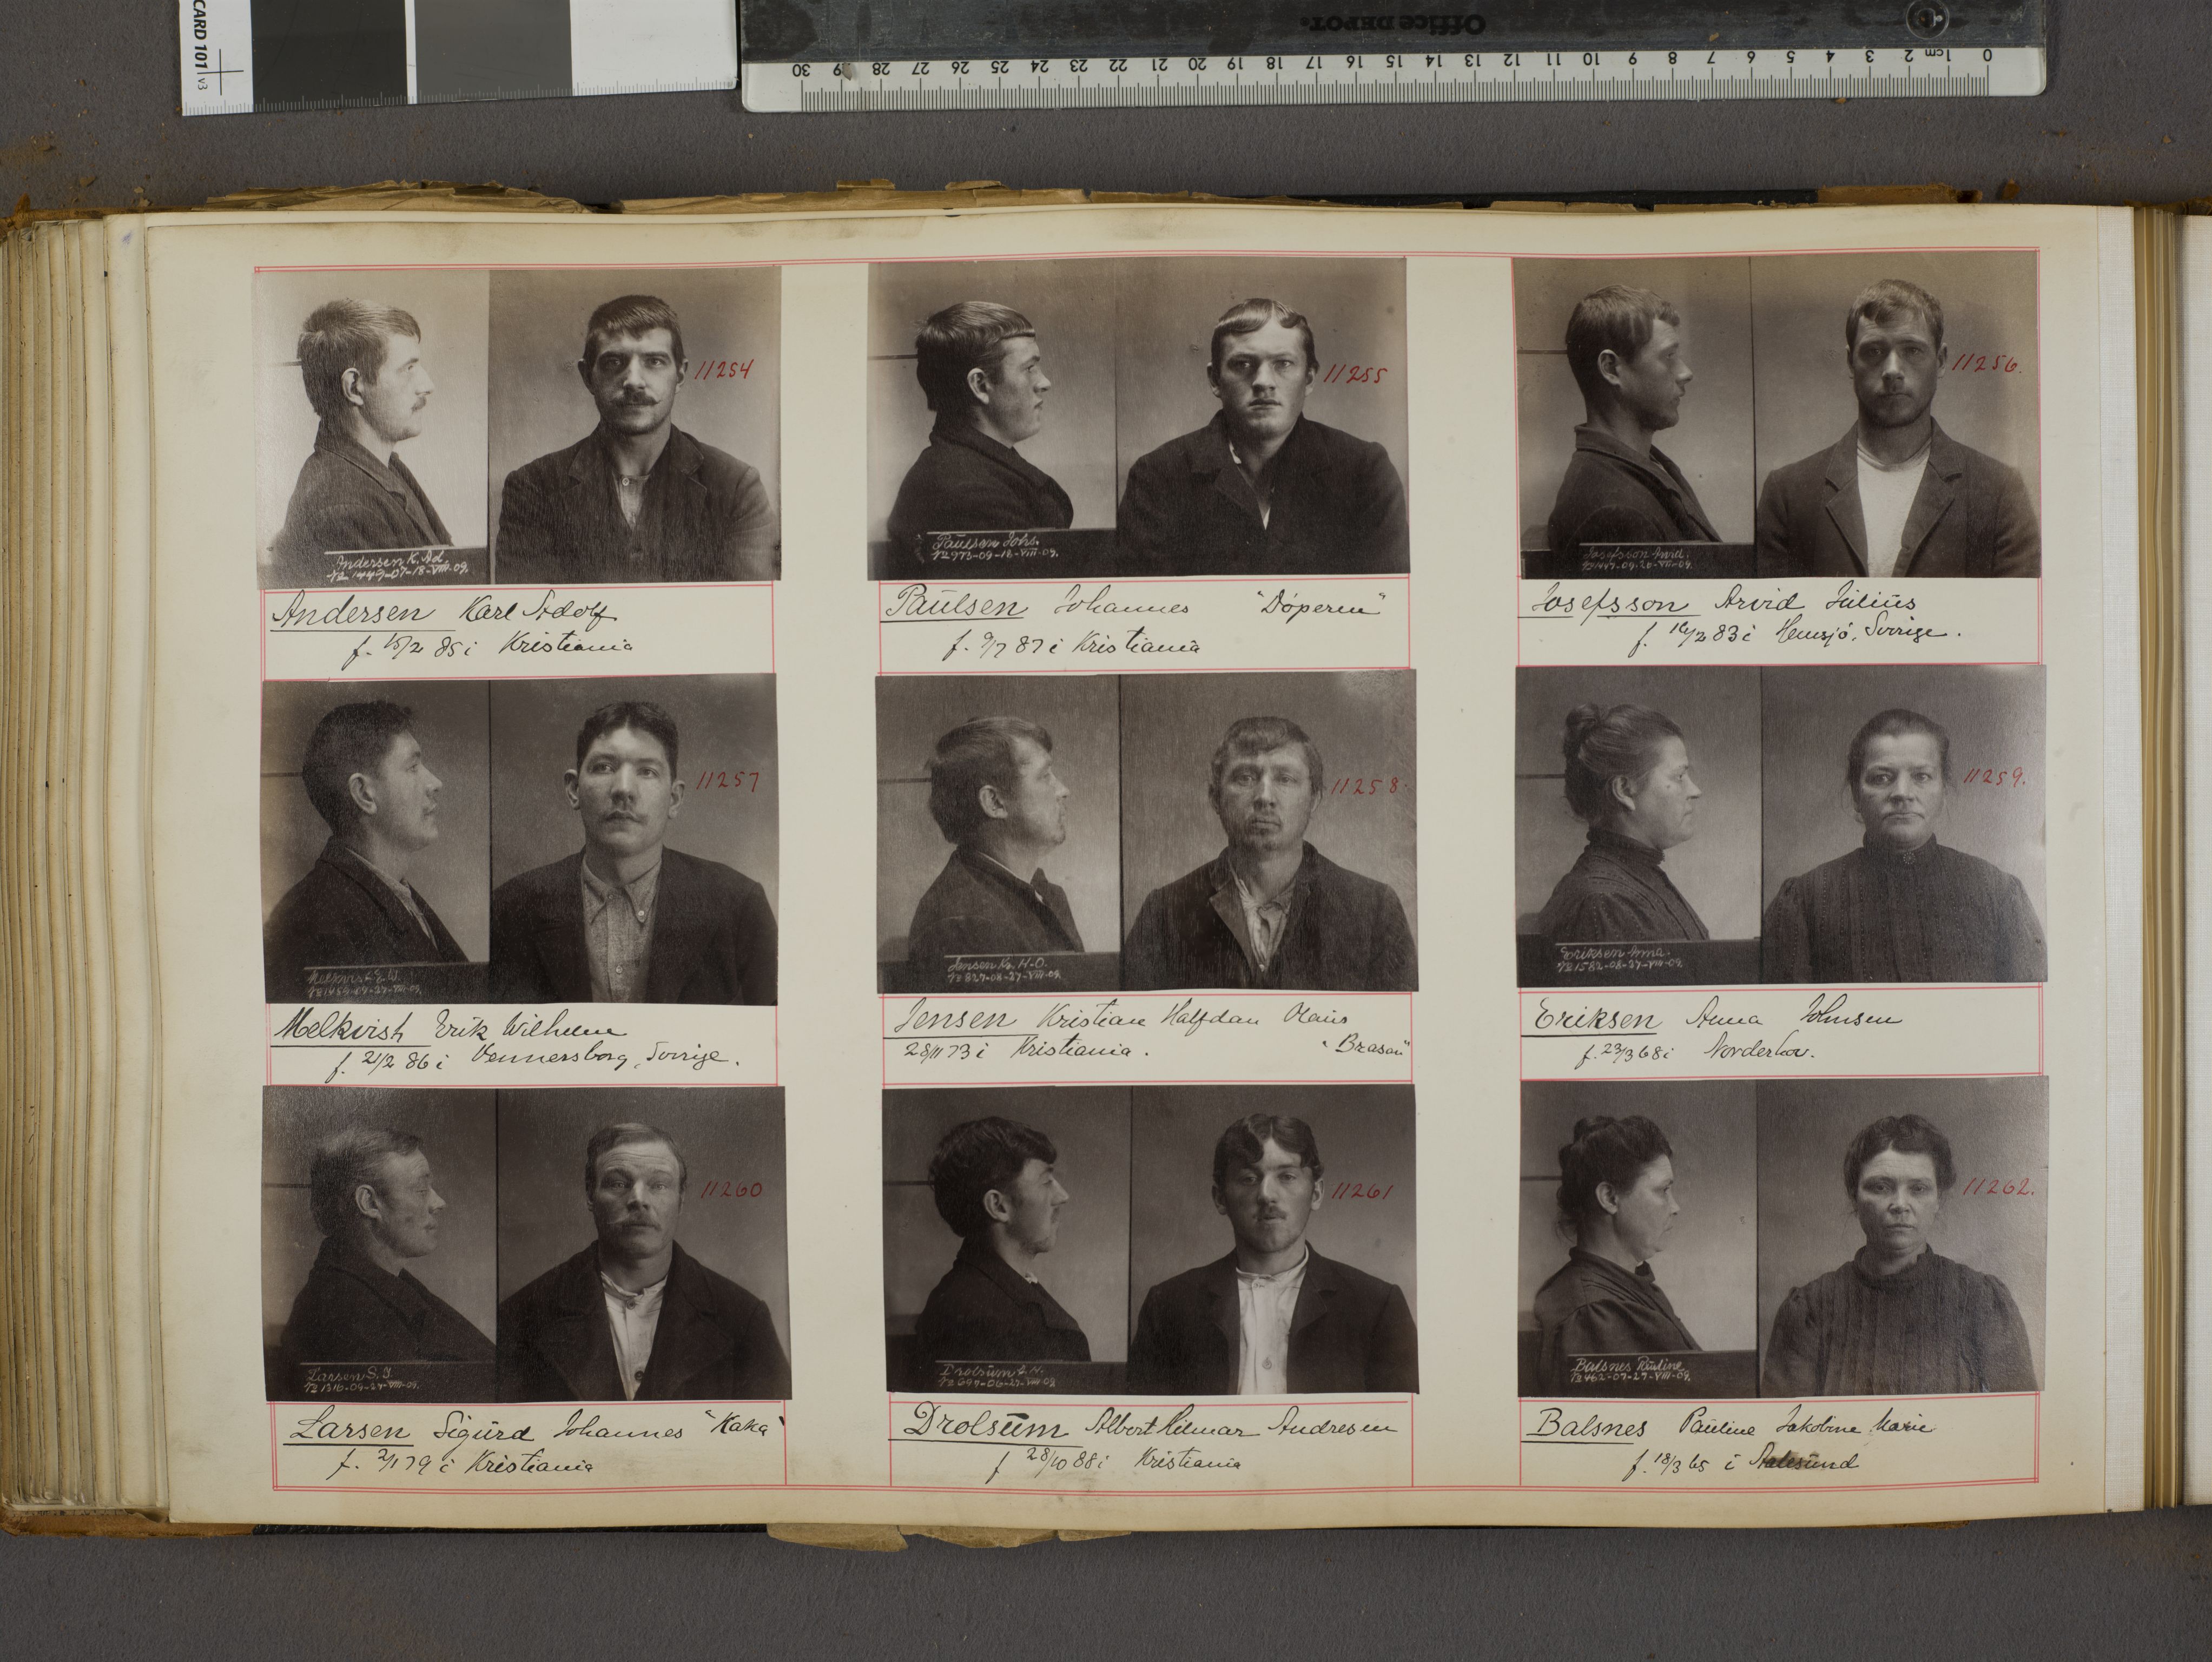 CARD 101 v3
Office DEPOT.
30 29 28 27 26 25 24 23 22 21 20 19 18 17 16 15 14 13 12 11 10 9 8 7 6 5 4 3 2 1cm 0
11254
Andersen K. Ad.
№ 1449-07-18-VIII-09.
Andersen Karl Adolf
f. 15/2 85 i Kristiania
11255
Paulsen Johs.
№ 973-09-18-VIII-09.
Paulsen Johannes "Döperen"
f. 9/7 87 i Kristiania
11256.
Josefsson Arvid.
Josefsson Arvid Julius
83 i Hemsjö, Sverige.
11257
Melkvist E. W.
Melkvist Erik Wilhelm
f. 21/2 86 i Vennersborg, Sverige.
11258.
Jensen Kr. H. O.
№ 827-08-27-VIII-09.
Jensen Kristian Halfdan Olaus
28/11 73 i Kristiania. "Brasen"
11259.
Eriksen Anna.
№ 1582-08-27-VIII-09.
Eriksen Anna Johnsen
f. 23/3 68 i Norderhov.
11260
Larsen S. J.
№ 1316-09-27-VIII-09.
Larsen Sigurd Johannes "Kaka"
f. 2/1 79 i Kristiania
11261
Drolsum A. H.
№ 697-06-27-VIII-09
Drolsum Albert Hilmar Andresen
f 28/10 88 i Kristiania
11262.
Balsnes Pauline.
№ 462-07-27-VIII-09.
Balsnes Pauline Jakobine Marie
f. 18/3 65 i Aalesund